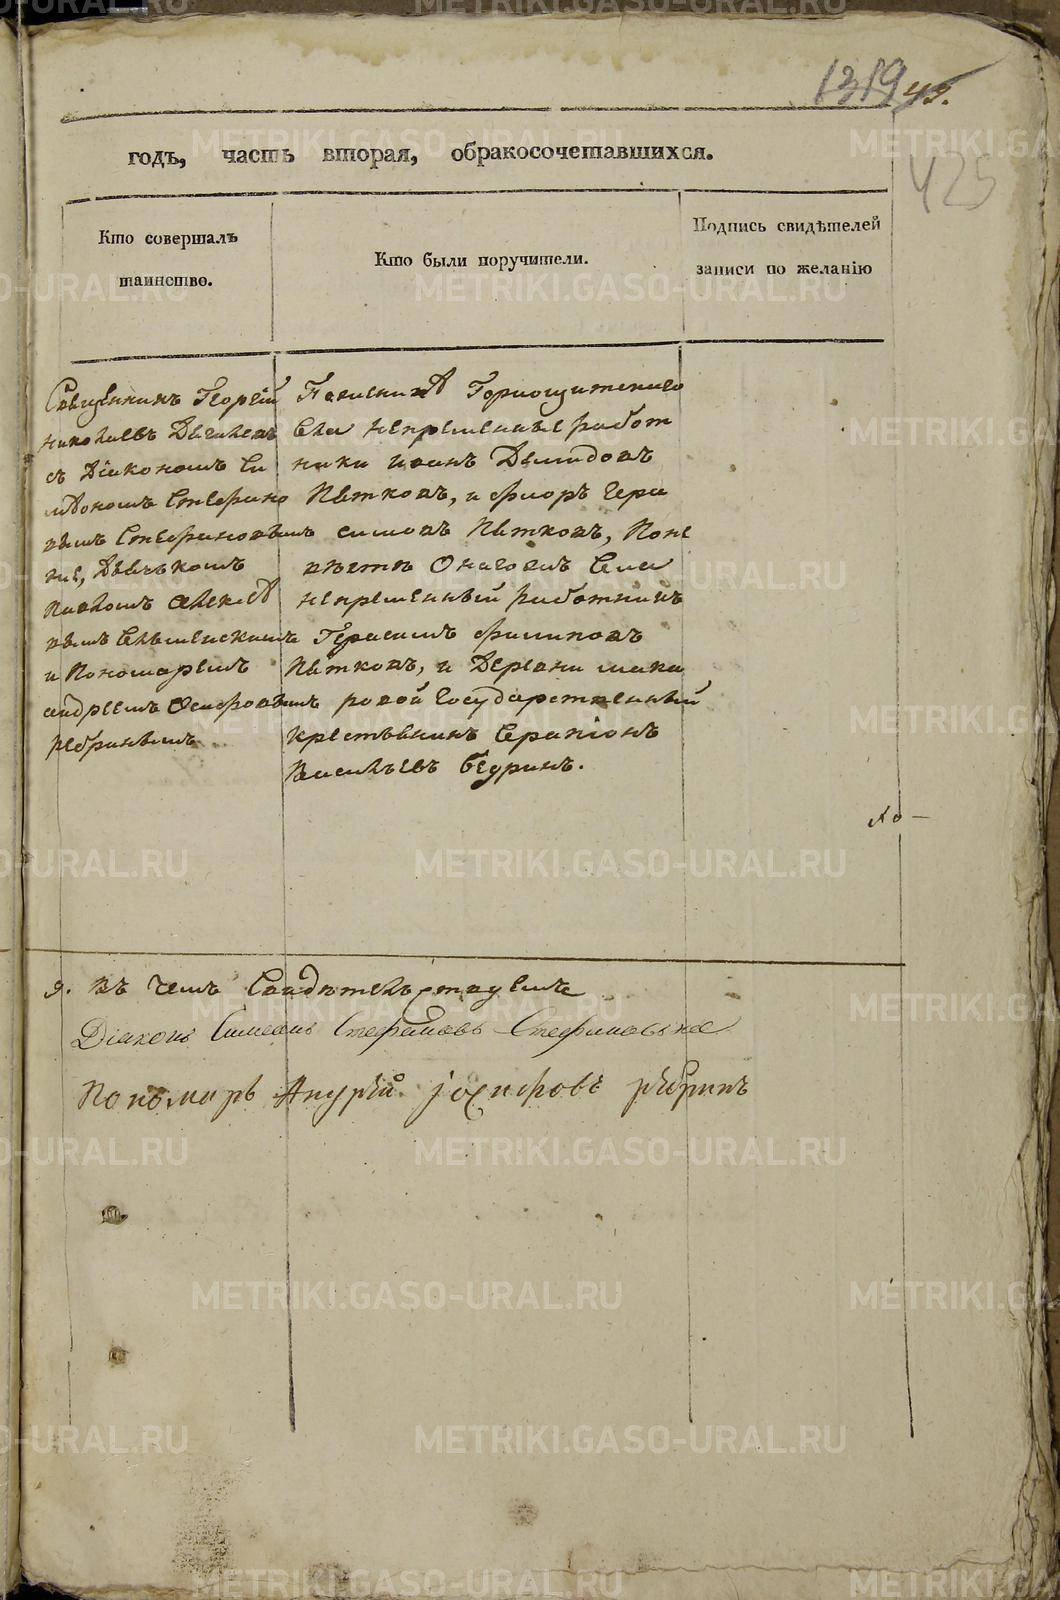 1319 43.
425
годъ, часть вторая, обракосочетавшихся.
Кто совершалъ
таинство.
Кто были поручители.
Подпись свидѣтелей
записи по желанію
Священникъ Георгій
Николаевъ Дягилевъ
съ Діакономъ Си
меономъ Стефано
вымъ Стефановымъ
Дьячькомъ
Павломъ Алексѣе
вымъ
и Пономаремъ
андреемъ Осиповымъ
ребринымъ
По женихѣ Горнощитскаго
Села непременные работ
ники иванъ Демидовъ
Пятковъ, и фиоръ Гера
симовъ Пятковъ, По не
вѣстѣ Онагожъ Села
непременный работникъ
Герасимъ филиповъ
Пятковъ, и Деревни мака
ровой Государственный
крестьянинъ Серапіонъ
Васильевъ бедринъ.
я. Въ чемъ Свидѣтельствуемъ
Діаконъ Симеонъ Стефановъ
Пономарь Андрей іосифовъ ребринъ
METRIKI.GASO-URAL.RU